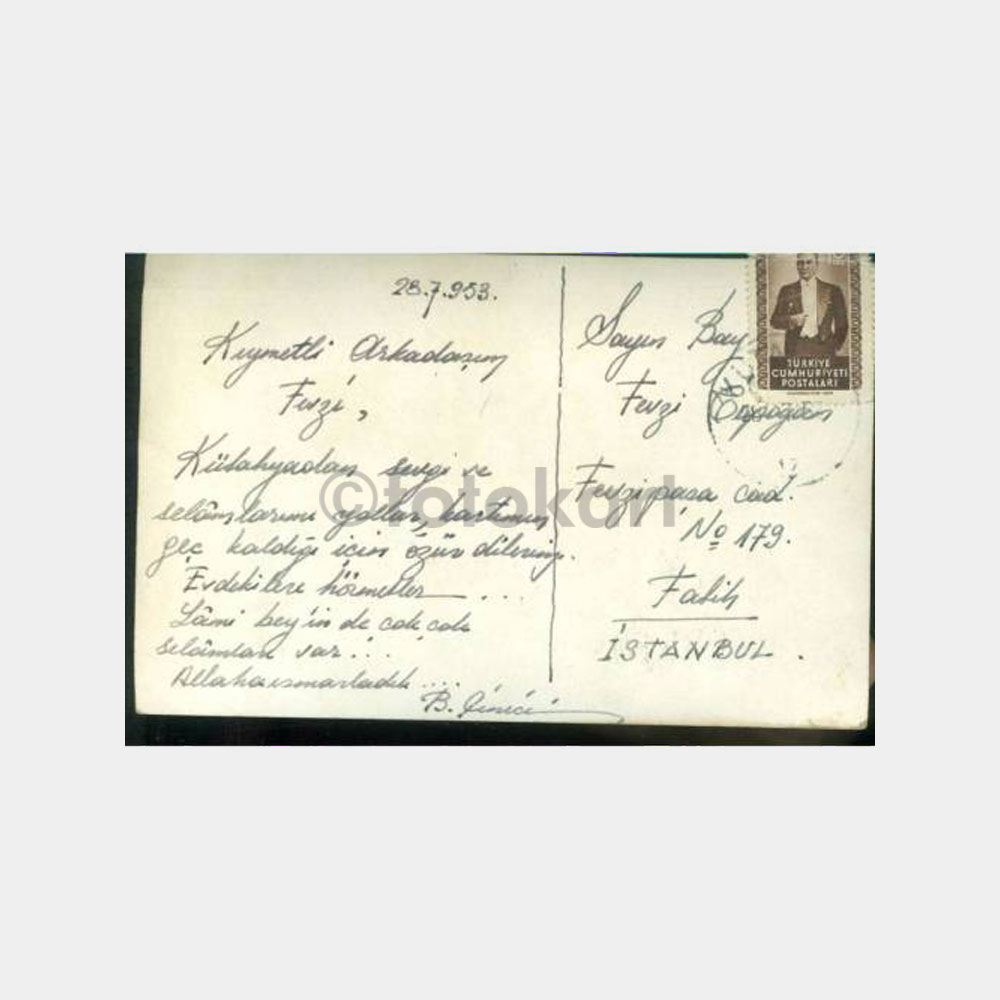 28.7.953.
Kıymetli Arkadaşım
Fevzi,
Kütahyadan sevgi ve
selâmlarımı yollar, kartımın
geç kaldığı için özür dilerim.
Evdekilere hörmetler ...
Lâmi bey'in de çok çok
selâmları var ...
Allahaısmarladık ....
B. Çinici
Sayın Bay
Fevzi
Fevzipaşa cad.
No 179.
Fatih
İSTANBUL .
TÜRKİYE
CUMHURİYETİ
POSTALARI
©fotokart